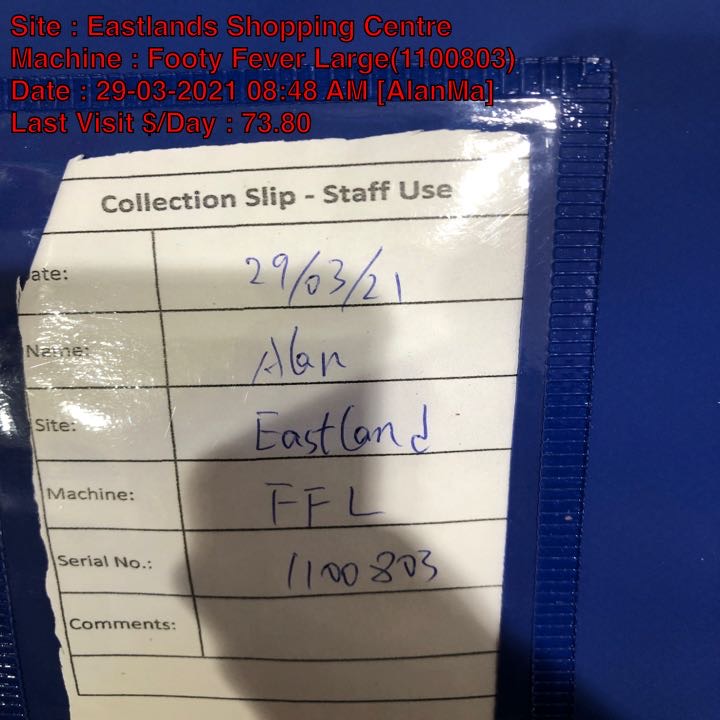 Site : Eastlands Shopping Centre
Machine : Footy Fever Large(1100803)
Date : 29-03-2021 08:48 AM [AlanMa]
Last Visit $/Day : 73.80
Collection Slip - Staff Use
ate: 29/03/21
Name: Alan
Site: Eastland
Machine: FFL
Serial No.: 1100803
Comments: